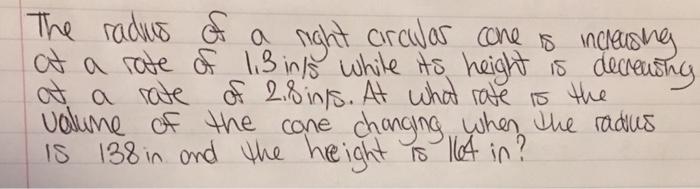 The radius of a right circular cone is increasing
at a rate of 1.3 in/s while its height is decreasing
at a rate of 2.8 in/s. At what rate is the
volume of the cone changing when the radius
is 138 in and the height is 164 in?